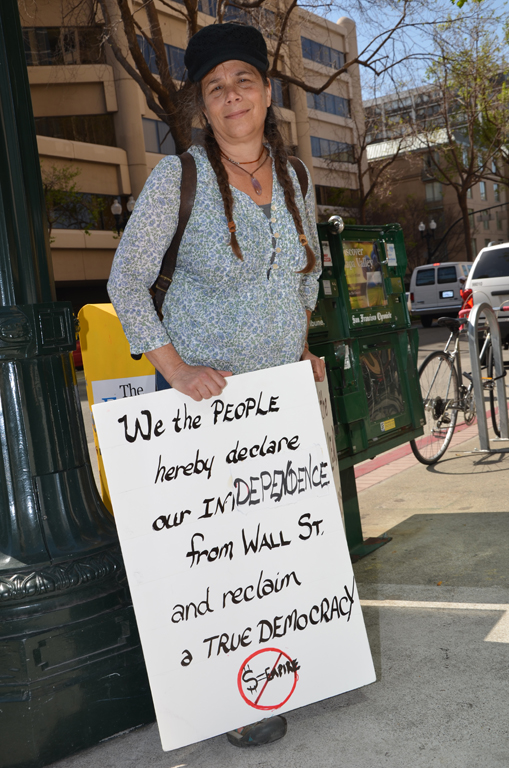 We the PEOPLE
hereby declare
our INDEPENDENCE
from WALL ST.
and reclaim
a TRUE DEMOCRACY
$=EMPIRE
The
San Francisco Chronicle